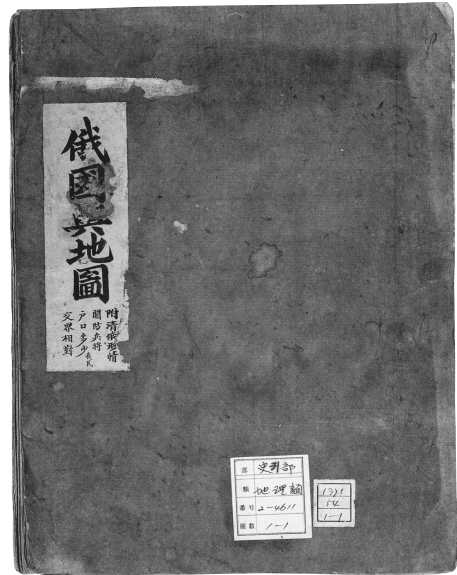 俄國輿地圖
附清俄形情
關防兵將
戶口多少我民
交界相對
部 史料部
類 地理類
番号 2-4611
數 1-1
54
1-1